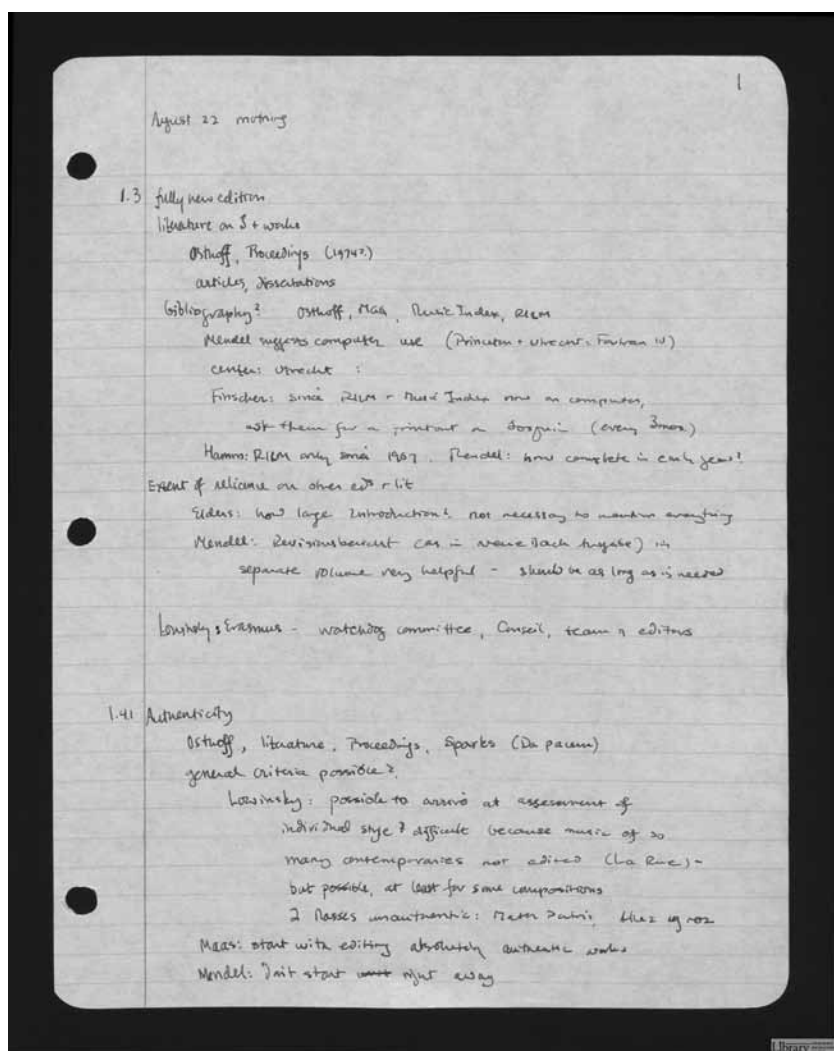 1
August 22 morning
1.3 fully new edition
literature on J + works
Osthoff, Proceedings (1974?)
articles, dissertations
bibliography? Osthoff, Maa, Music Index, RILM
Mendel suggests computer use (Princeton + Utrecht: Fortran IV)
center: Utrecht :
Finscher: since RILM + Music Index now on computer,
ask them for a printout on Josquin (every 3 mos)
Hamm: RILM only since 1967. Mendel: how complete in early years?
Extent of reliance on other eds + lit
Elders: how large Introduction? not necessary to mention everything
Mendel: Revisionsbericht (as in Neue Bach Ausgabe) in
separate volume very helpful - should be as long as is needed
Lowinsky: Erasmus - watchdog committee, Conseil, team of editors
1.41 Authenticity
Osthoff, literature, Proceedings, Sparks (Da pacem)
general criteria possible?
Lowinsky: possible to arrive at assessment of
individual style? difficult because music of so
many contemporaries not edited (La Rue) -
but possible, at least for some compositions
2 Masses unauthentic: Mater Patris,
Maas: start with editing absolutely authentic works
Mendel: Don't start right away
Library